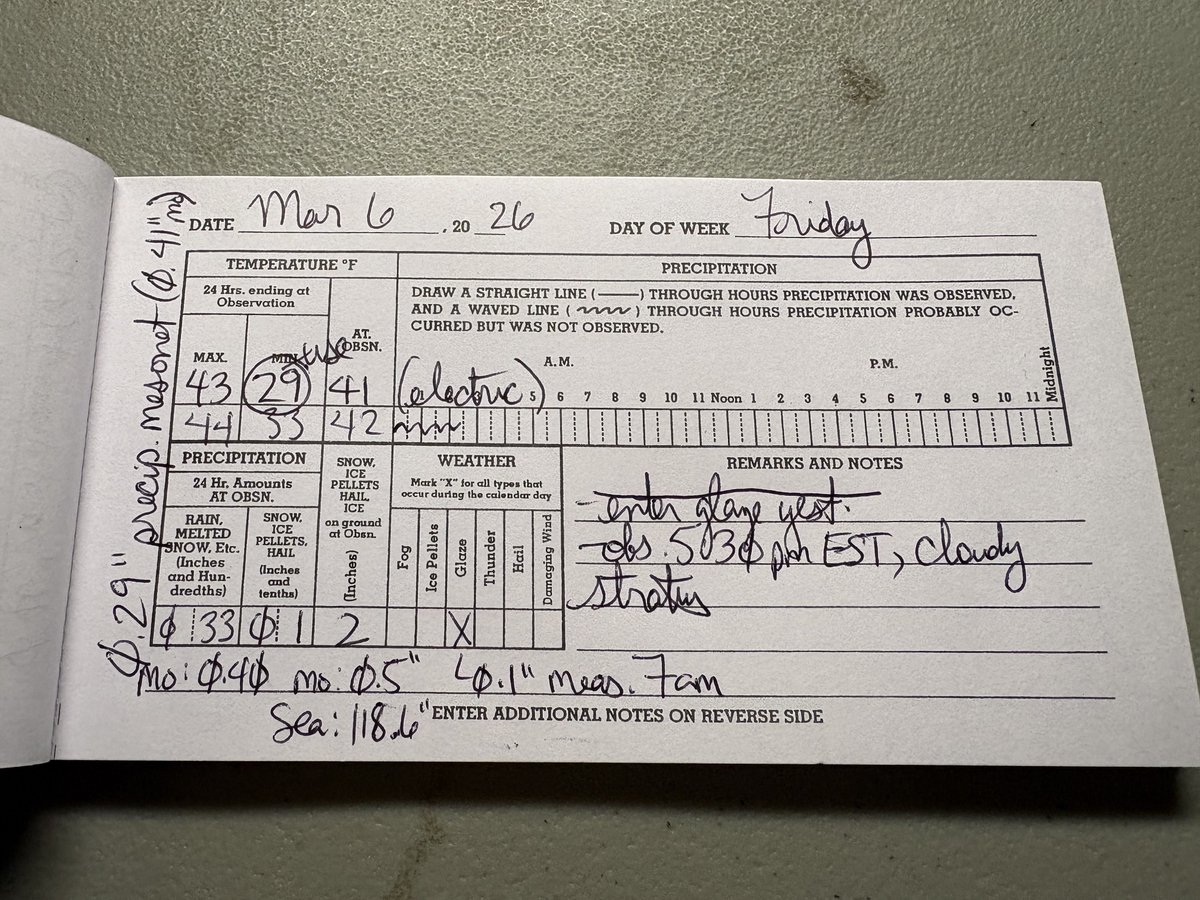 DATE Mar 6, 20 26 DAY OF WEEK Friday
TEMPERATURE °F
24 Hrs. ending at
Observation
MAX.
MIN.
AT.
OBSN.
use
43 29 41
44 33 42
PRECIPITATION
DRAW A STRAIGHT LINE (——) THROUGH HOURS PRECIPITATION WAS OBSERVED,
AND A WAVED LINE (~~~~) THROUGH HOURS PRECIPITATION PROBABLY OC-
CURRED BUT WAS NOT OBSERVED.
A.M. P.M.
(electric) 5 6 7 8 9 10 11 Noon 1 2 3 4 5 6 7 8 9 10 11 Midnight
PRECIPITATION
24 Hr. Amounts
AT OBSN.
RAIN,
MELTED
SNOW, Etc.
(Inches
and Hun-
dredths)
SNOW,
ICE
PELLETS,
HAIL
(Inches
and
tenths)
SNOW,
ICE
PELLETS
HAIL,
ICE
on ground
at Obsn.
(Inches)
WEATHER
Mark "X" for all types that
occur during the calendar day
Fog
Ice Pellets
Glaze
Thunder
Hail
Damaging Wind
Ø 33 Ø 1 2 X
REMARKS AND NOTES
- enter glaze yest.
- obs. 530 pm EST, cloudy
stratus
mo: Ø.4Ø mo: Ø.5" Ø.1" meas. 7am
Sea: 118.6"
ENTER ADDITIONAL NOTES ON REVERSE SIDE
Ø.29" precip. mesonet (Ø.41" mo)